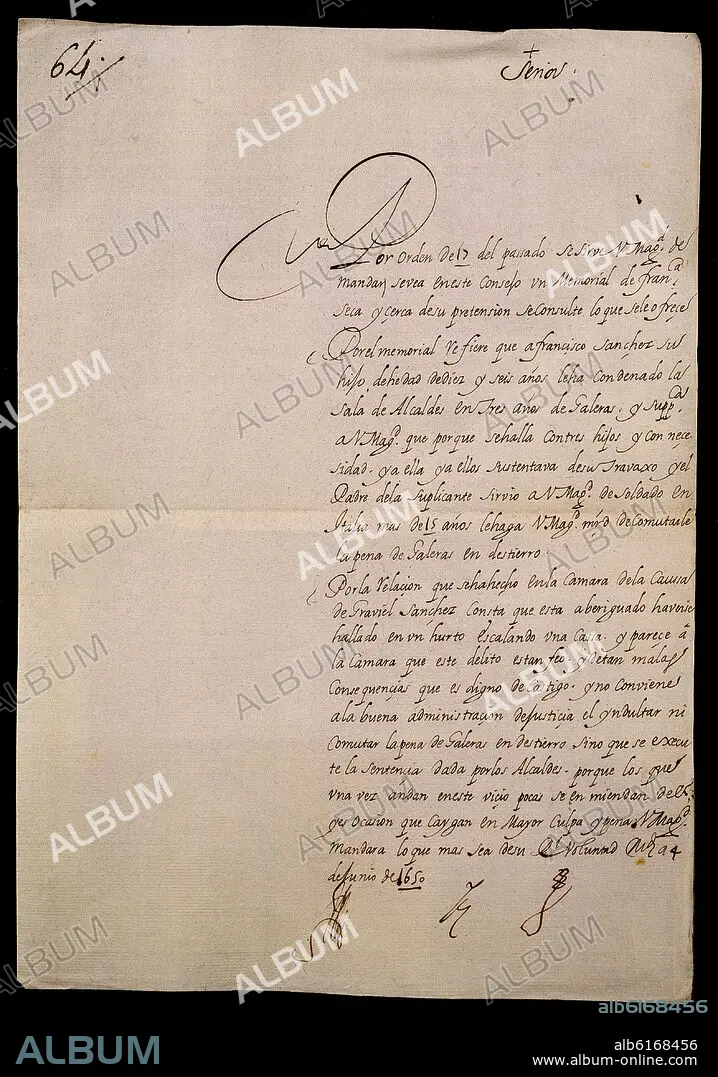 64
+
Señor
Por Orden de 17 del passado se sirve V Mag.d de
mandar se vea en este Consejo vn Memorial de fran.ca
seca y cerca de su pretension se Consulte lo que se le ofreçe
Por el memorial Refiere que a francisco Sanchez su
hijo de hedad de diez y seis años le ha Condenado la
Sala de Alcaldes en Tres años de Galeras. y supp.ca
a V Mag.d que porque se halla Con tres hijos y con nece
sidad. y a ella y a ellos sustentava de su Travaxo y el
Padre de la Suplicante sirvio a V Mag.d de soldado en
Italia mas de 15 años le haga V Mag.d mrd de Comutarle
la pena de Galeras en destierro.
Por la Relacion que se ha hecho en la Camara de la Caussa
de Graviel Sanchez Consta que esta aberiguado haverse
hallado en vn hurto escalando vna Cassa. y parece a
la Camara que este delito es tan feo y de tan malas
Consequencias que es digno de Castigo. y no Conviene
a la buena administraçion de Justicia el yndultar ni
Comutar la pena de Galeras en destierro sino que se execu
te la sentençia dada por los Alcaldes. porque los que
vna vez andan en este vicio pocas se enmiendan de
y es ocasion que Caygan en Mayor Culpa y pena V Mag.d
Mandara lo que mas sea de su R.l Voluntad M.d a 4
de Junio de 1650
ALBUM
alb6168456
alb6168456
www.album-online.com